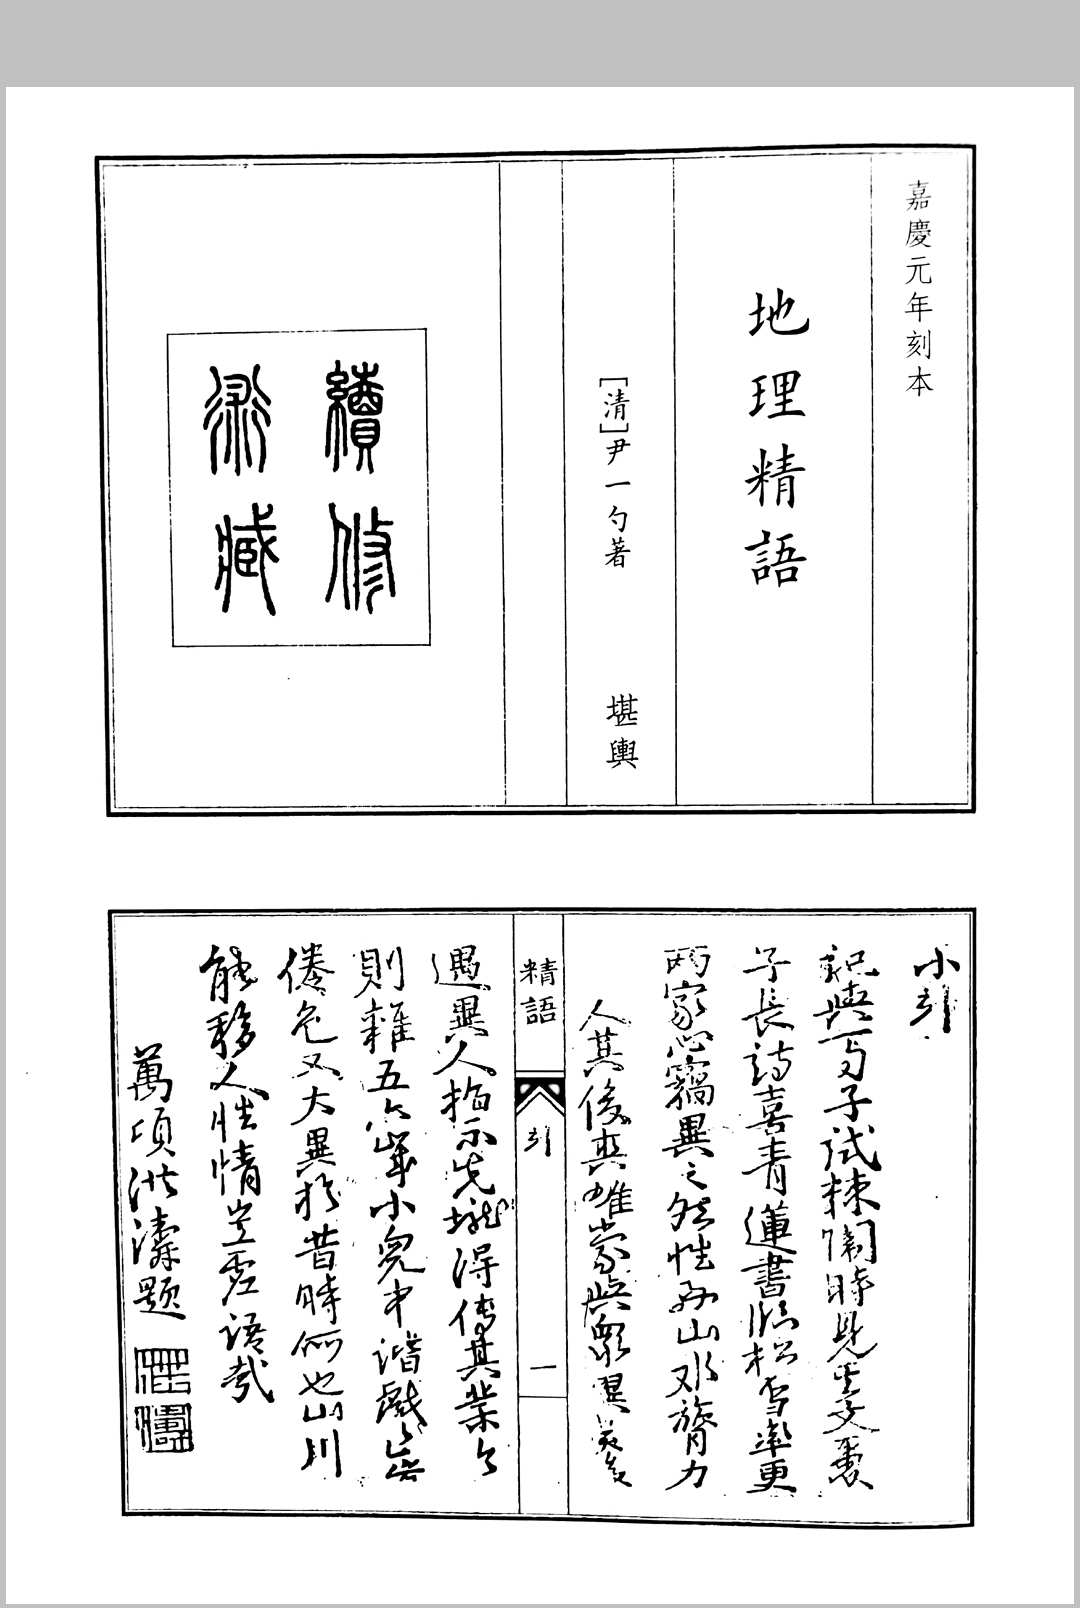 嘉慶元年刻本
地理精語
[清]尹一勺著
堪輿
續修
小引
記與一勺子試棘闈時見其文裏
子長詩喜青蓮書臨松雪率更
兩家心竊異之然性好山水膂力
人其後與雖棠與眾
精語
引
一
遇異人指示先壠得傳其業今
則雜五六輩小兒中諧戲
倦色又大異於昔時何也山川
能移人性情豈虛語哉
萬頃洪濤題